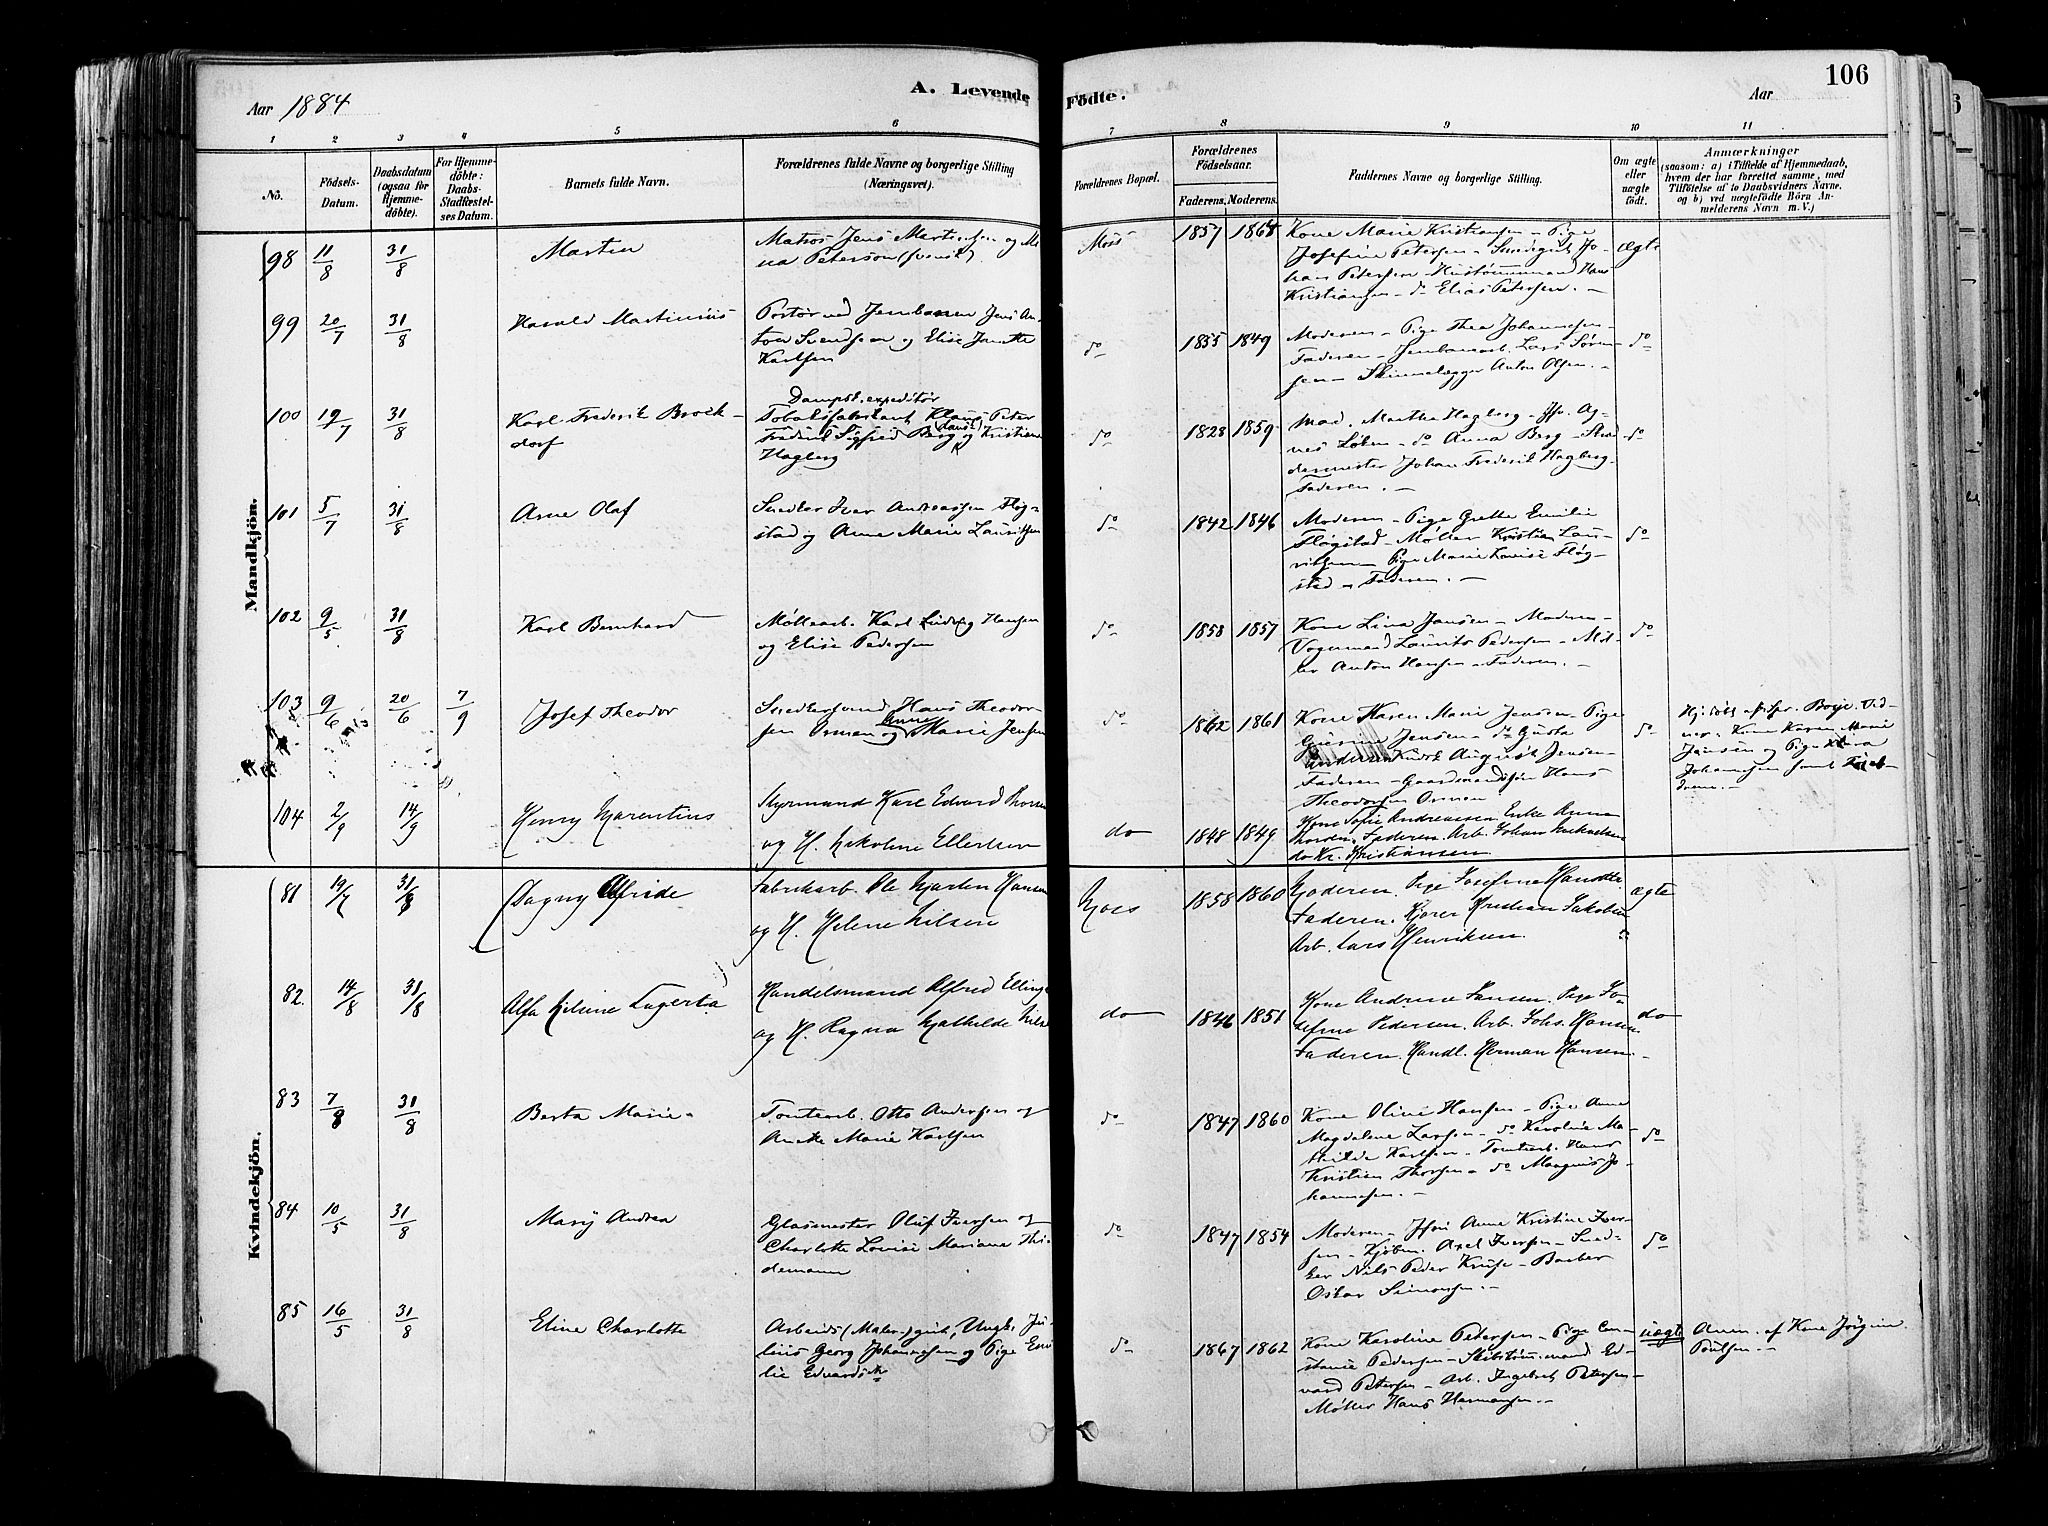 Aar 1884
A. Levende Födte.
Aar
106
1 2 3 4 5 6 7 8 9 10 11
No.
Födsels-
Datum.
Daabsdatum
(ogsaa for
Hjemme-
döbte).
For Hjemme-
döbte:
Daabs-
Stadfæstel-
ses Datum.
Barnets fulde Navn.
Forældrenes fulde Navne og borgerlige Stilling
(Næringsvei).
Forældrenes Bopæl.
Forældrenes
Födselsaar.
Faderens. Moderens.
Faddernes Navne og borgerlige Stilling.
Om ægte
eller
uægte
födt.
Anmærkninger
(saasom: a) i Tilfælde af Hjemmedaab,
hvem der har forrettet samme, med
Tilföielse af to Daabsvidners Navne.
og b) ved uægtefödte Börn An-
melderens Navn m. V.)
Mandkjön.
98 11/8 31/8 Martin
Matros Jens Martinsen og Mi-
na Peterson (svensk)
Moss 1857 1864
Kone Marie Kristiansen - Pige
Josefine Petersen - Smedegut Jo-
han Petersen - Hustømmermand Hans
Kristiansen - do Elias Petersen. -
ægte
99 20/7 31/8 Harald Martinius
Portør ved Jernbanen Jens An-
ton Svendsen og Elise Janette
Karlsen
do 1855 1849
Moderen - Pige Thea Johannesen -
Faderen - Jernbanearb. Lars Søren-
sen - Skinnelægger Anton Olsen. -
do
100 19/7 31/8 Karl Frederik Brock-
dorf
Dampsk.expeditør
Tobaksfabrikant Klaus Peter
Fredrik Sigfred Berg (dansk) og Kristiane
Hagberg
do 1828 1859
Mad. Martha Hagberg - Jfr. Ag-
nes Løken - do Anna Berg - Skræ-
dermester Johan Frederik Hagberg -
Faderen. -
do
101 5/7 31/8 Arne Olaf
Snedker Iver Andreassen Fløg-
stad og Anne Marie Lauritsen
do 1842 1846
Moderen - Pige Grethe Emilie
Fløgstad - Møller Kristian Lau-
ritsen - Pige Marie Lovise Fløg-
stad - Faderen. -
do
102 9/5 31/8 Karl Bernhard
Møllearb. Karl Ludvig Hansen
og Elise Pedersen
do 1858 1857
Kone Lina Jansen - Moderen -
Vognmand Laurits Pedersen - Møl-
ler Anton Hansen - Faderen. -
do
103 9/6 20/6 7/9 Josef Theodor
Snedkersvend Hans Theodor-
sen Orman og Anne Marie Jensen
do 1862 1861
Kone Karen Marie Jensen - Pige
Jensen - do Gusta
August Jensen -
Faderen - Gaardmandssøn Hans
Theodorsen Orman
do
Hj.døbt af Børje. Vid-
ner: Kone Karen Marie
Jansen og Pige Klara
Johannesen samt
104 2/9 14/9 Henry Marentius
Styrmand Karl Edvard Thorsen
og H. Nikoline Ellertsen
do 1848 1849
Kone Sofie Andreassen. Enke Anna
Faderen. Arb. Johan
do Kr. Kristiansen
Kvindekjön.
81 19/7 31/8 Dagny Alfride
Fabrikarb. Ole Martin Hansen
og H. Helene Nilsen
Moss 1858 1860
Moderen. Pige Josefine
Faderen. Kjører Kristian Jakobsen
Arb. Lars Henriksen.
ægte
82. 14/8 31/8 Alfa Lagerta
Handelsmand Alfred
og H. Ragna Mathilde
do 1846 1851
Kone Andrine Jansen. Pige Jo-
sefine Pedersen. Arb. Johs. Hansen
Faderen. Handl. Herman Hansen. -
do
83 7/8 31/8 Berta Marie
Tomtearb. Otto Andersen og
Anette Marie Karlsen
do 1847 1860
Kone Oline Hansen - Pige Anne
Magdalene Larsen - do Karoline Ma-
thilde Karlsen - Tomtearb. Hans
Kristian Thorsen - do Magnus Jo-
hannesen. -
do
84 10/5 31/8 Mary Andrea
Glasmester Oluf Iversen og
Charlotte Lovise Mariane Thi-
demann
do 1847 1854
Moderen - Jfr. Anne Kristine Iver-
sen - Kjøbm. Axel Iversen - Sned-
ker Nils Peder Kruse - Barber
Oskar Simonsen. -
do
85 16/5 31/8 Eline Charlotte
Arbeids (Maler-) gut, Ungk. Ju-
lius Georg Johannesen og Pige Emi-
lie Edvardsdtr
do 1867 1862
Kone Karoline Petersen - Pige Con-
stance Pedersen - Skibstømmermand Ed-
vard Petersen - Arb. Ingebret Petersen -
Møller Hans Hermansen. -
uægte
Anm. af Kone Jørgine
Poulsen. -